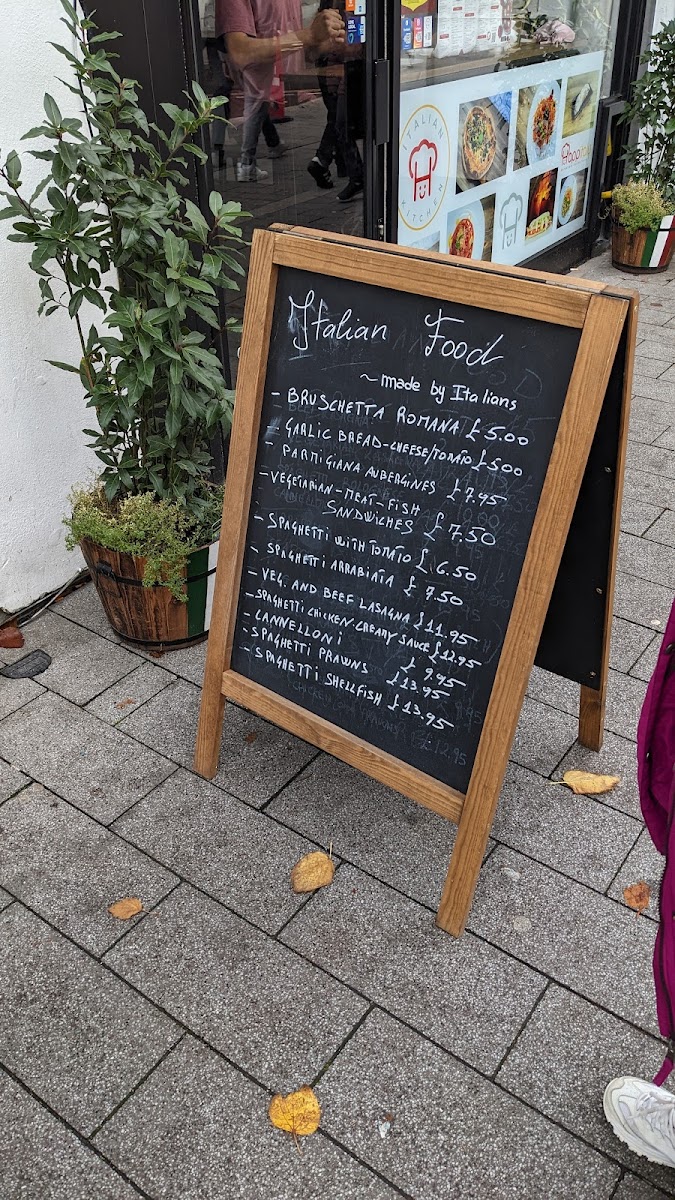 ITALIAN
KITCHEN
Italian Food
~made by Italians
- BRUSCHETTA ROMANA £5.00
- GARLIC BREAD-CHEESE/TOMATO £500
- PARMIGIANA AUBERGINES £7.95
- VEGETARIAN-MEAT-FISH
SANDWICHES £7.50
- SPAGHETTI WITH TOMATO £6.50
- SPAGHETTI ARRABIATA £7.50
- VEG. AND BEEF LASAGNA £11.95
- SPAGHETTI CHICKEN-CREAMY SAUCE £12.95
- CANNELLONI £9.95
- SPAGHETTI PRAWNS £13.95
- SPAGHETTI SHELLFISH £13.95